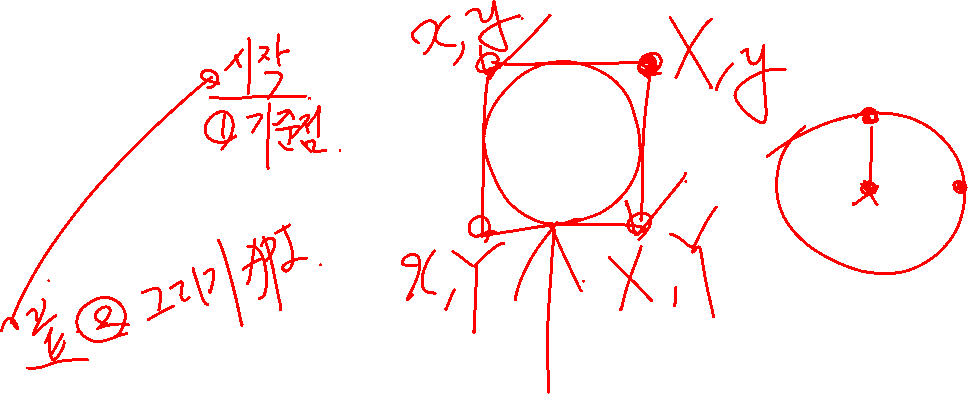 시작
① 기준점.
끝 ② 그리기
x, y
X, y
x, Y
X, Y